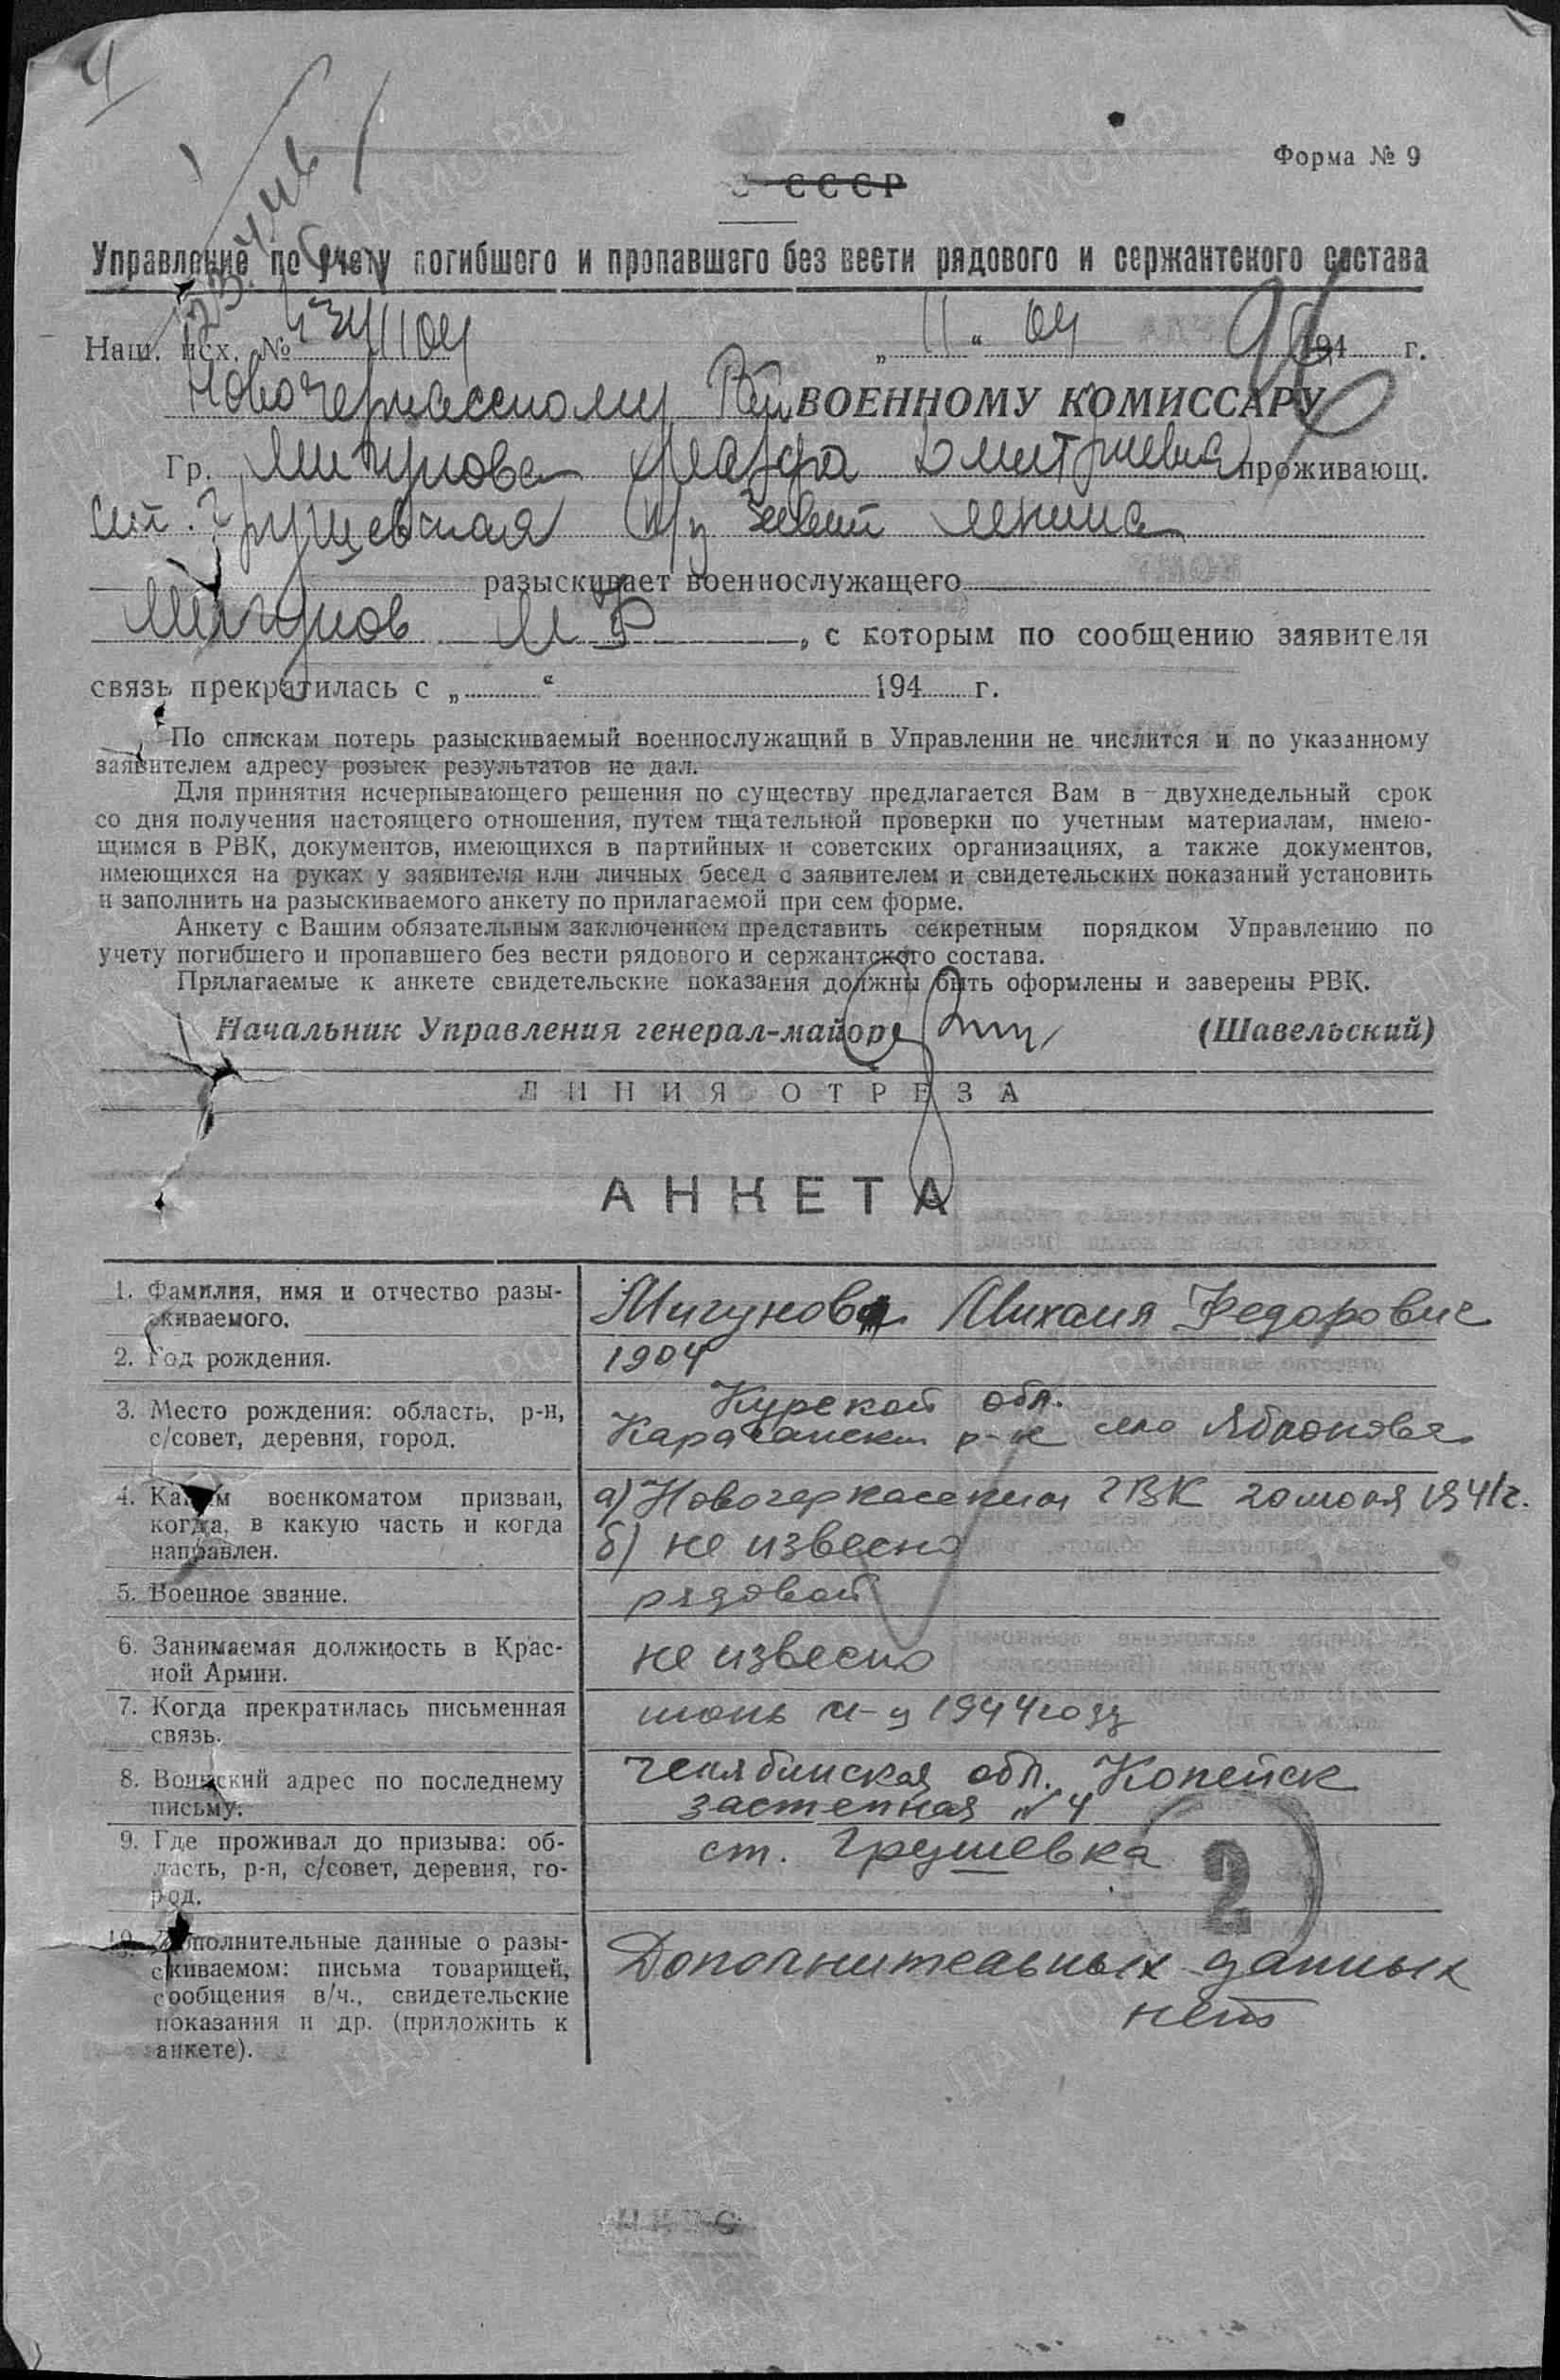 4
Форма № 9
СССР
Управление по учету погибшего и пропавшего без вести рядового и сержантского состава
Наш. исх. № „ 11 “ 04 194 г.
Новочеркасскому ВОЕННОМУ КОМИССАРУ
Гр. Мигунова Дмитриевна проживающ.
ст. Грушевская Ленина
разыскивает военнослужащего
Мигунов М Ф , с которым по сообщению заявителя
связь прекратилась с „ “ 194 г.
По спискам потерь разыскиваемый военнослужащий в Управлении не числится и по указанному
заявителем адресу розыск результатов не дал.
Для принятия исчерпывающего решения по существу предлагается Вам в двухнедельный срок
со дня получения настоящего отношения, путем тщательной проверки по учетным материалам, имею-
щимся в РВК, документов, имеющихся в партийных и советских организациях, а также документов,
имеющихся на руках у заявителя или личных бесед с заявителем и свидетельских показаний установить
и заполнить на разыскиваемого анкету по прилагаемой при сем форме.
Анкету с Вашим обязательным заключением представить секретным порядком Управлению по
учету погибшего и пропавшего без вести рядового и сержантского состава.
Прилагаемые к анкете свидетельские показания должны быть оформлены и заверены РВК.
Начальник Управления генерал-майор (Шавельский)
ЛИНИЯ ОТРЕЗА
АНКЕТА
1. Фамилия, имя и отчество разы-
скиваемого.
Мигунов Михаил Федорович
2. Год рождения.
1904
3. Место рождения: область, р-н,
с/совет, деревня, город.
Курской обл.
р-н село
4. Каким военкоматом призван,
когда, в какую часть и когда
направлен.
а) Новочеркасским ГВК 20 июля 1941г.
б) не извесно
5. Военное звание.
рядовой
6. Занимаемая должность в Крас-
ной Армии.
не извесно
7. Когда прекратилась письменная
связь.
июнь м-ц 1944 году
8. Воинский адрес по последнему
письму.
Челябинская обл. Копейск
застепная № 4
9. Где проживал до призыва: об-
ласть, р-н, с/совет, деревня, го-
род.
ст. Грушевка
2
10. Дополнительные данные о разы-
скиваемом: письма товарищей,
сообщения в/ч., свидетельские
показания и др. (приложить к
анкете).
Дополнительных данных
нет
ПАМЯТЬ
НАРОДА
ЦАМО.РФ